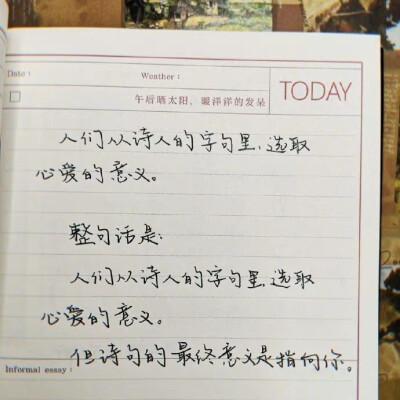 Date：
Weather：
午后晒太阳，暖洋洋的发呆
TODAY
人们从诗人的字句里，选取
心爱的意义。
整句话是：
人们从诗人的字句里，选取
心爱的意义。
但诗句的最终意义是指向你。
Informal essay：